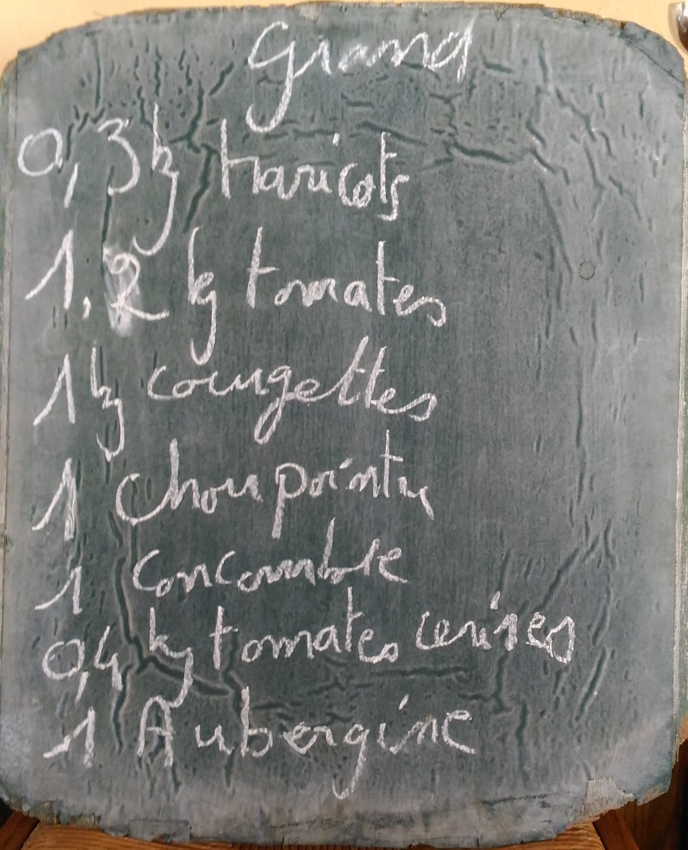 Grand
0,3 kg haricots
1,2 kg tomates
1 kg courgettes
1 Chou pointu
1 concombre
0,4 kg tomates cerises
1 Aubergine